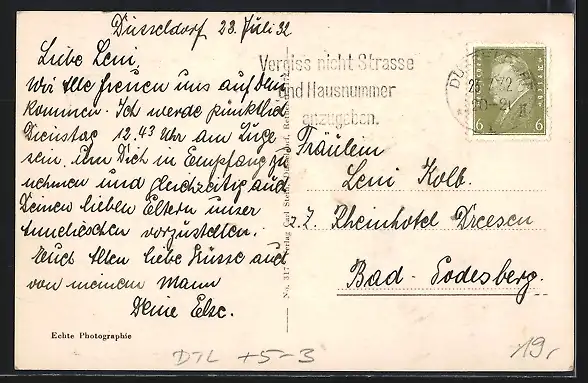 Düsseldorf 23. Juli 32
Liebe Leni,
Wir Alle freuen uns auf Dein
kommen. Ich werde pünktlich
Dienstag 12.43 Uhr am Zuge
sein, um Dich in Empfang zu
nehmen und gleichzeitig auch
Deinen lieben Eltern unser
vorzustellen.
Euch Allen liebe Küsse auch
von meinem Mann
Deine Else.
Echte Photographie
Vergiss nicht Strasse
und Hausnummer
anzugeben.
6 6
Fräulein
Leni Kolb.
z. Z. Rheinhotel Dreesen
Bad-Godesberg.
No. 317 Verlag Carl
DTL +5-3
19,-